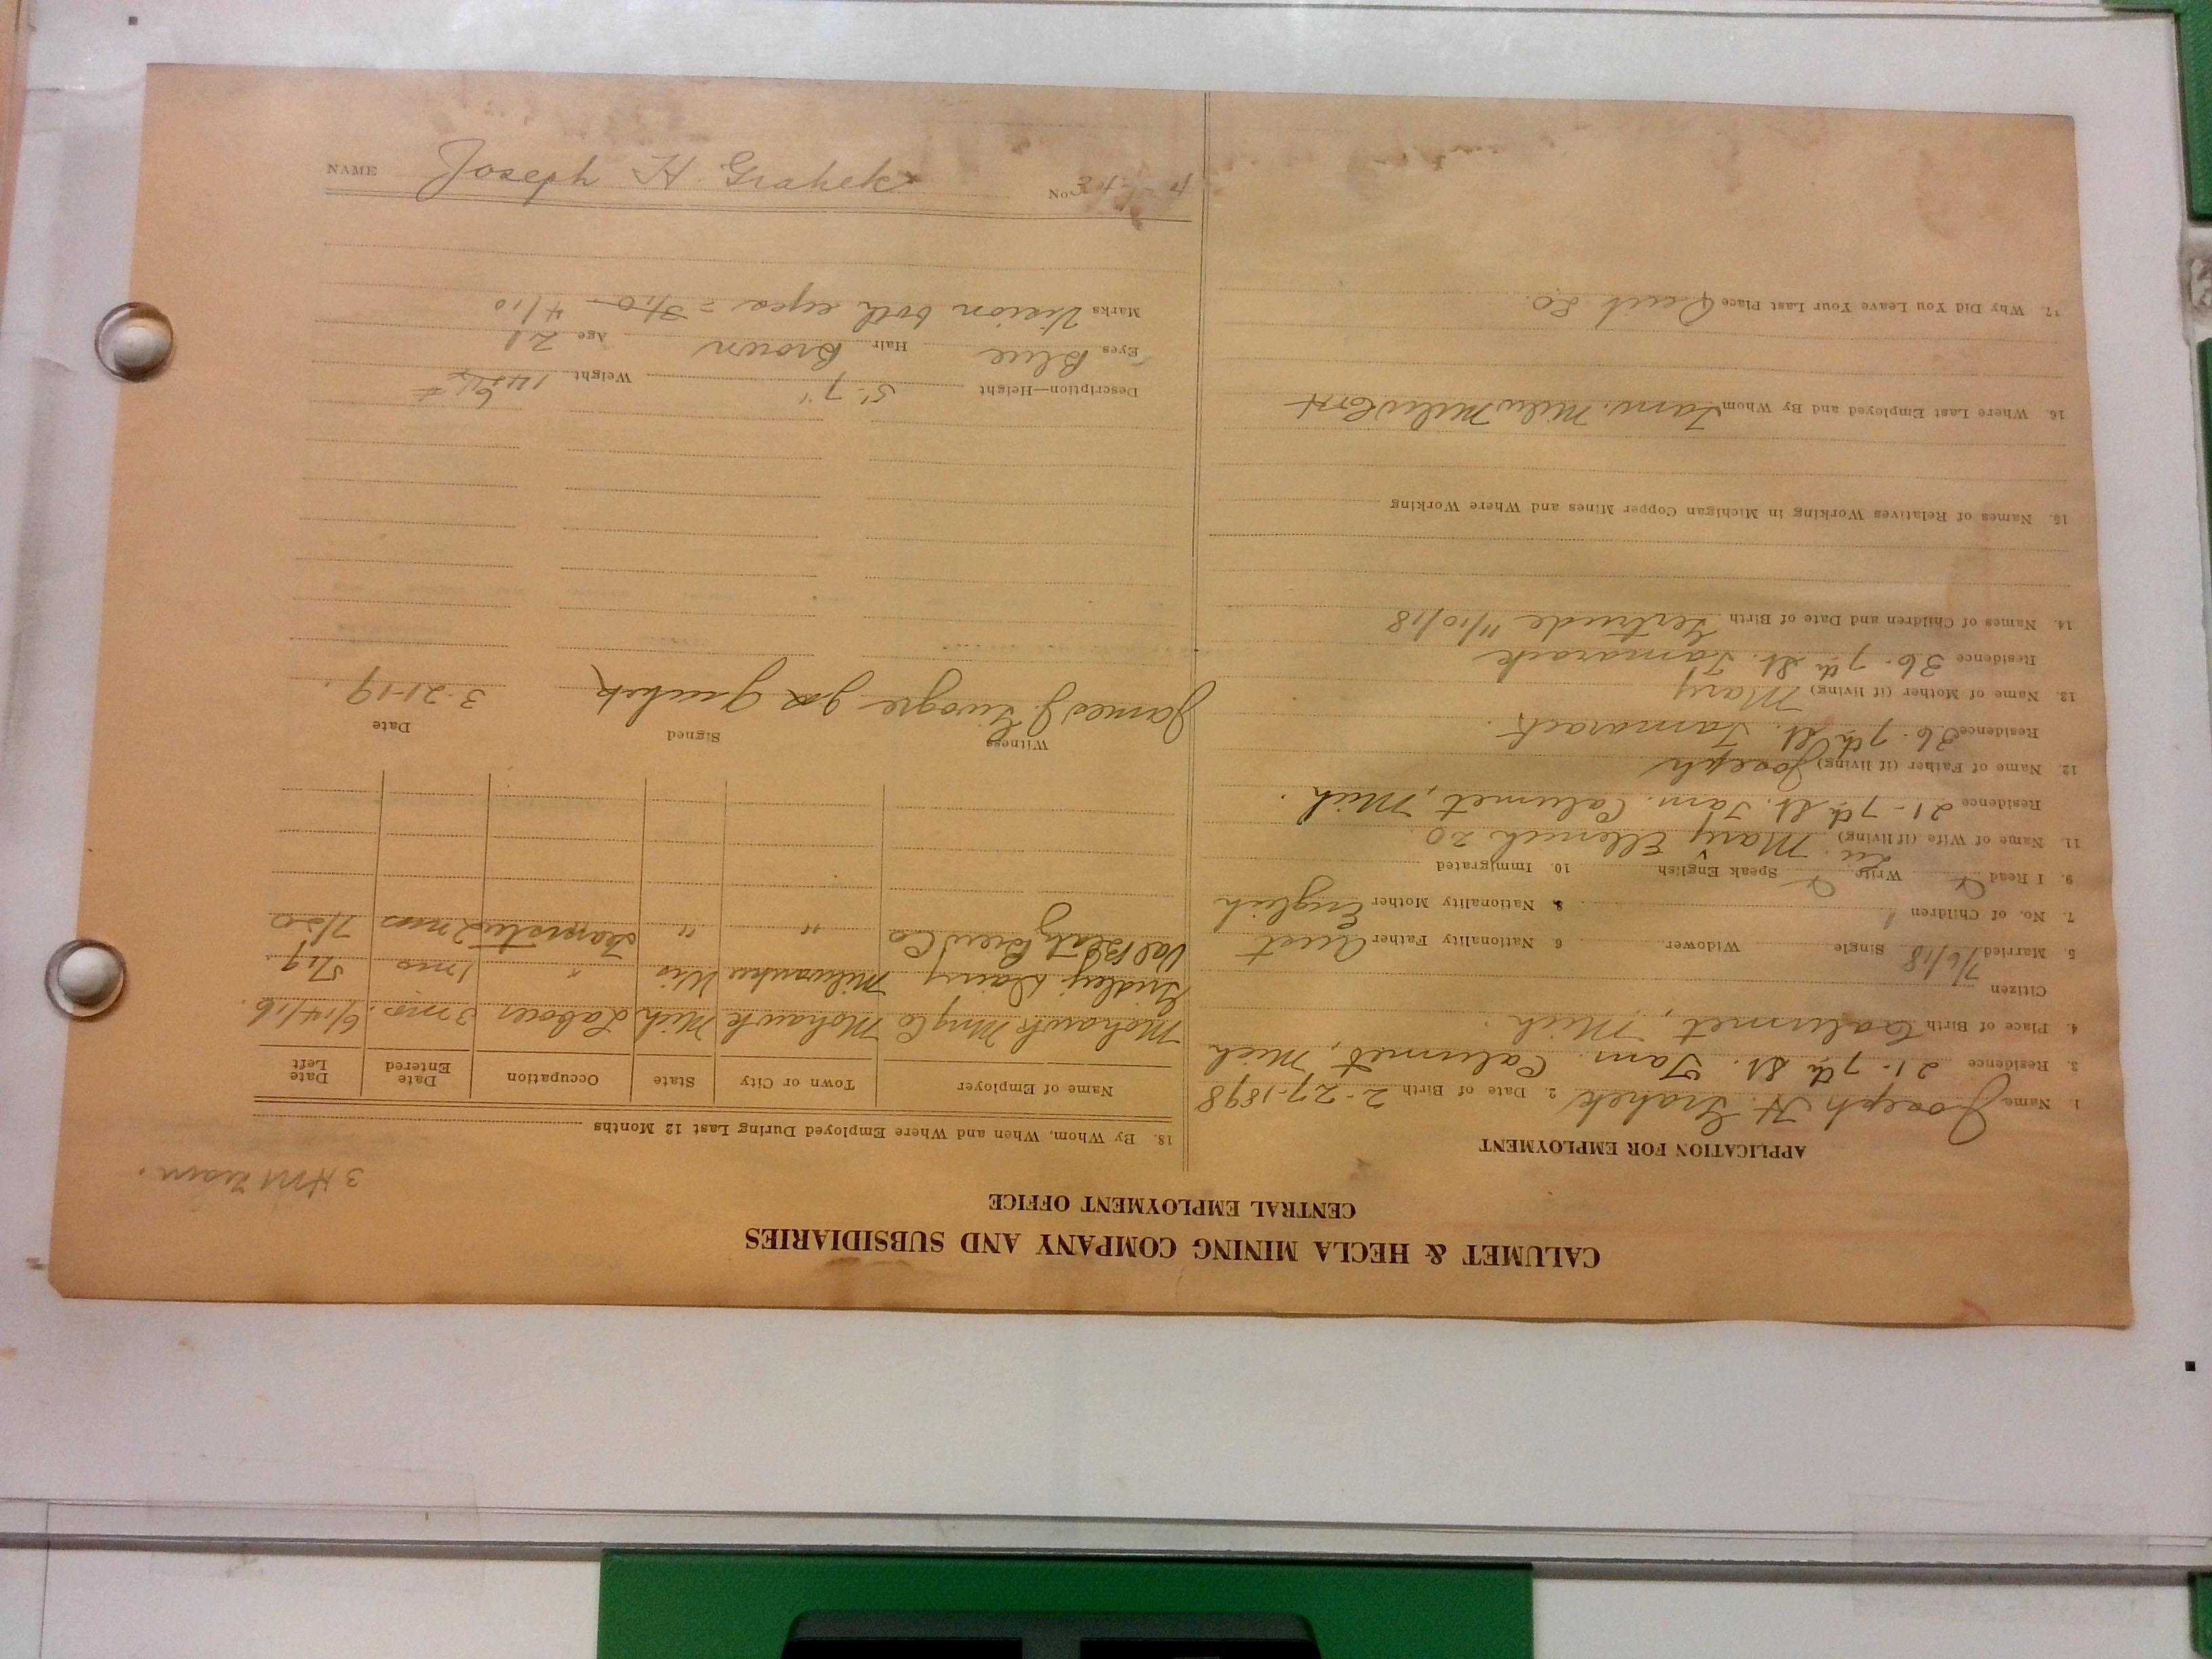 CALUMET & HECLA MINING COMPANY AND SUBSIDIARIES
CENTRAL EMPLOYMENT OFFICE
APPLICATION FOR EMPLOYMENT
1. Name Joseph H. Grahek 2. Date of Birth 2-27-1898
3. Residence 21-7th St. Tam. Calumet, Mich
4. Place of Birth Calumet, Mich.
Citizen
5. Married 7/6/18 Single Widower 6. Nationality Father Aust
7. No. of Children 1 8. Nationality Mother English
9. I Read Write Speak English 10. Immigrated
11. Name of Wife (if living) Mary 20.
Residence 21-7th St. Tam. Calumet, Mich.
12. Name of Father (if living) Joseph
Residence 36-7th St. Tamarack.
13. Name of Mother (if living) Mary
Residence 36-7th St. Tamarack
14. Names of Children and Date of Birth Gertrude 11/10/18
15. Names of Relatives Working in Michigan Copper Mines and Where Working
16. Where Last Employed and By Whom Tam.
17. Why Did You Leave Your Last Place Quit
18. By Whom, When and Where Employed During Last 12 Months
Name of Employer Town or City State Occupation Date Entered Date Left
Mohawk Mng Co Mohawk Mich Labor 3 mo. 6/14/16.
Gridley Dairy Milwaukee Wis " 1 mo
Val Blatz Brew Co " " 2 mos
Witness Signed Date
James J. 3-21-19.
Description—Height 5' 7" Weight
Eyes Blue Hair Brown Age 21
Marks Vision both eyes = 3/10 4/10
NAME Joseph H Grahek No.